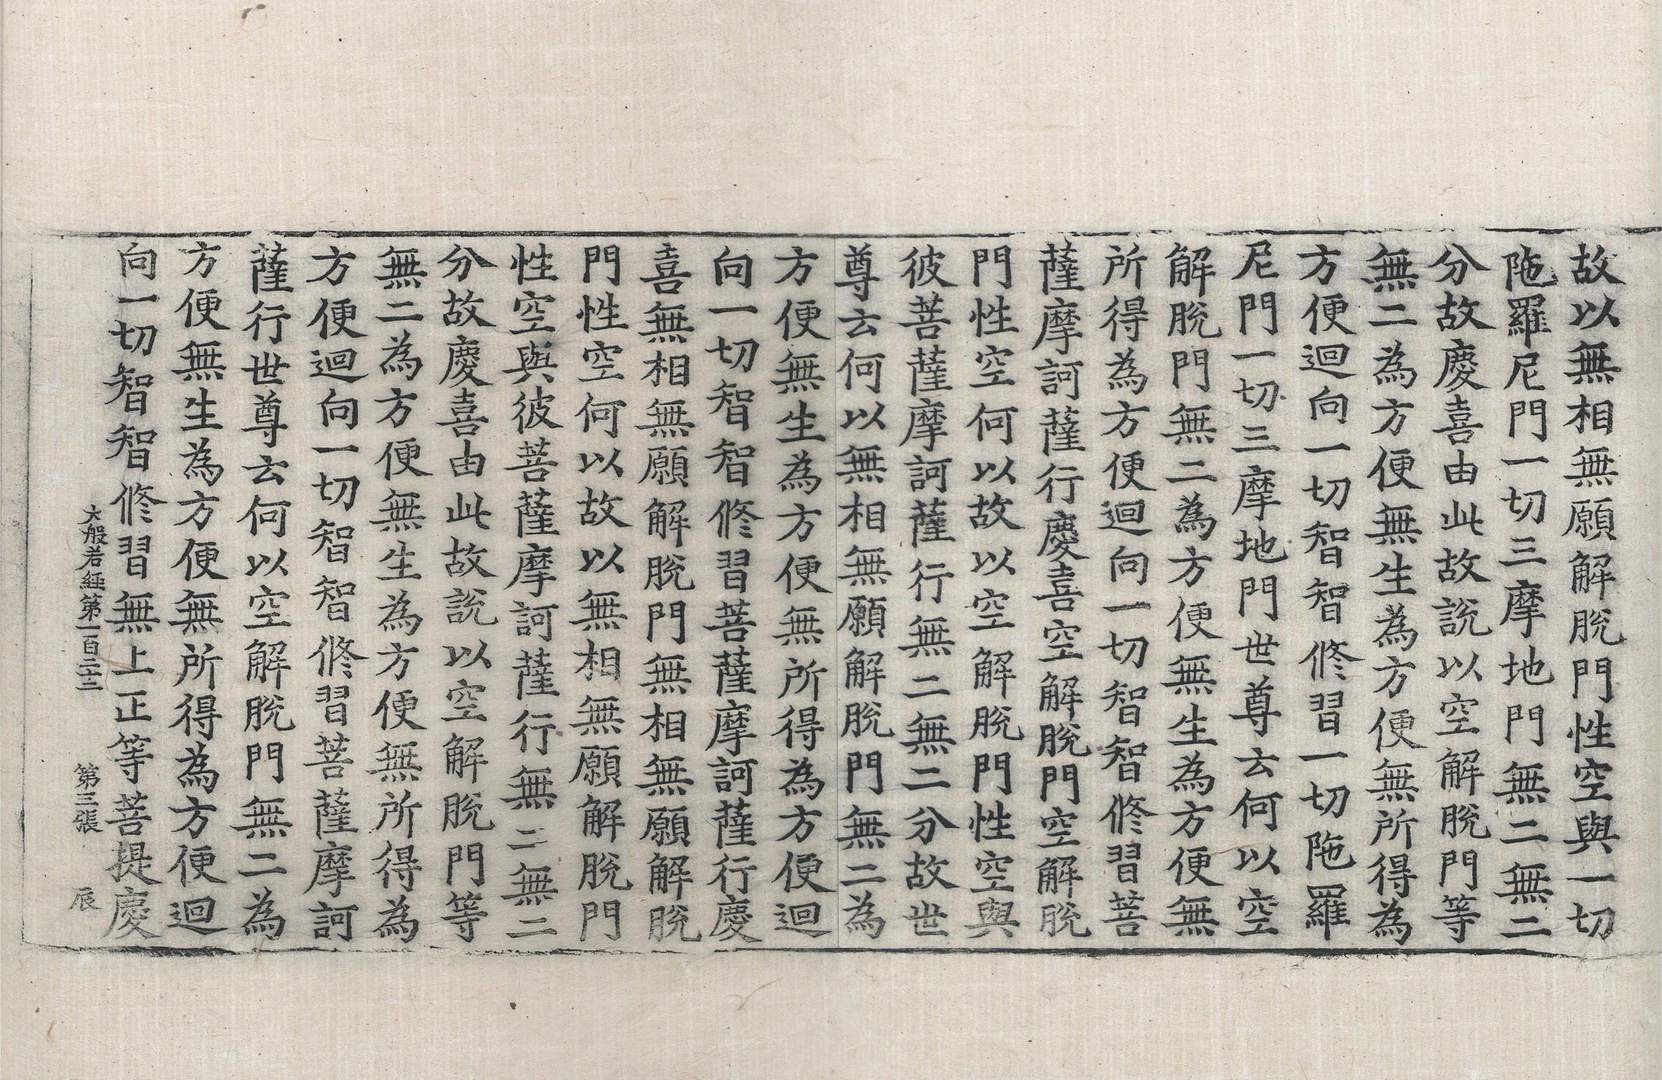 故以無相無願解脫門性空與一切
陁羅尼門一切三摩地門無二無二
分故慶喜由此故說以空解脫門等
無二為方便無生為方便無所得為
方便迴向一切智智修習一切陁羅
尼門一切三摩地門世尊云何以空
解脫門無二為方便無生為方便無
所得為方便迴向一切智智修習菩
薩摩訶薩行慶喜空解脫門空解脫
門性空何以故以空解脫門性空與
彼菩薩摩訶薩行無二無二分故世
尊云何以無相無願解脫門無二為
方便無生為方便無所得為方便迴
向一切智智修習菩薩摩訶薩行慶
喜無相無願解脫門無相無願解脫
門性空何以故以無相無願解脫門
性空與彼菩薩摩訶薩行無二無二
分故慶喜由此故說以空解脫門等
無二為方便無生為方便無所得為
方便迴向一切智智修習菩薩摩訶
薩行世尊云何以空解脫門無二為
方便無生為方便無所得為方便迴
向一切智智修習無上正等菩提慶
大般若經第一百二十二 第三張 辰